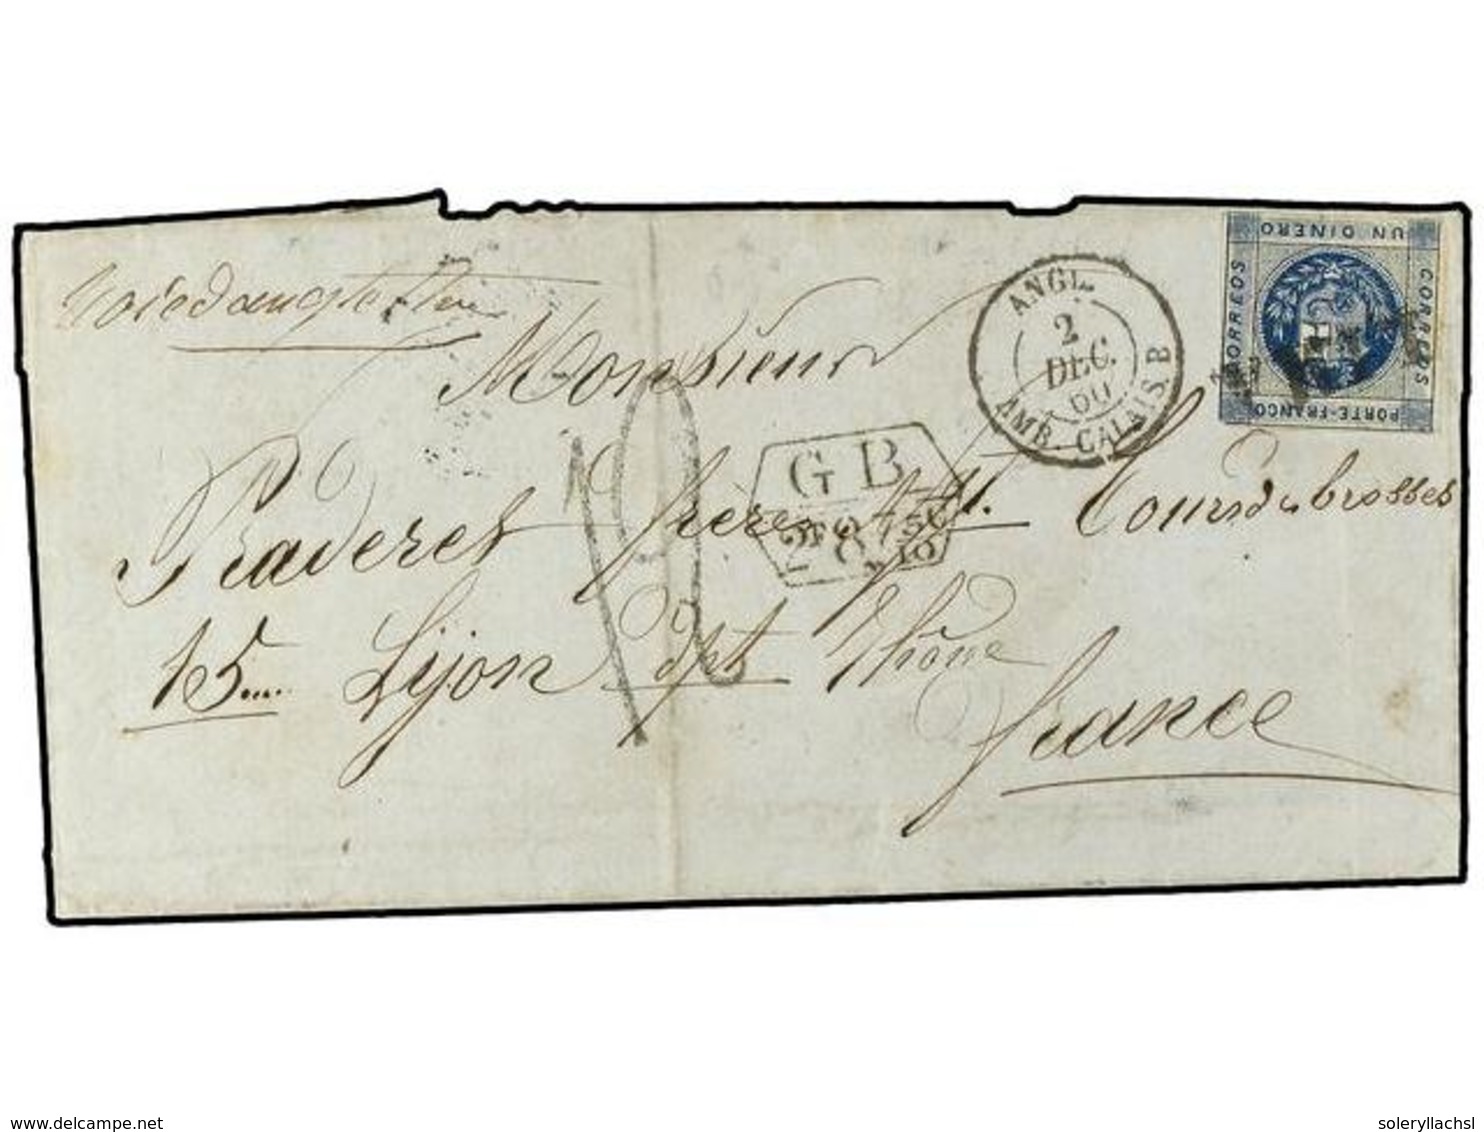 Voie d'angleterre
Monsieur
Praderet frères
Cours des brosses
15 Lyon dpt Rhône
France
ANGL.
2
DEC.
60
AMB. CALAIS. B
GB
2F 87 5c
10
UN DINERO
CORREOS
CORREOS
PORTE-FRANCO
www.delcampe.net
soleryllachsl